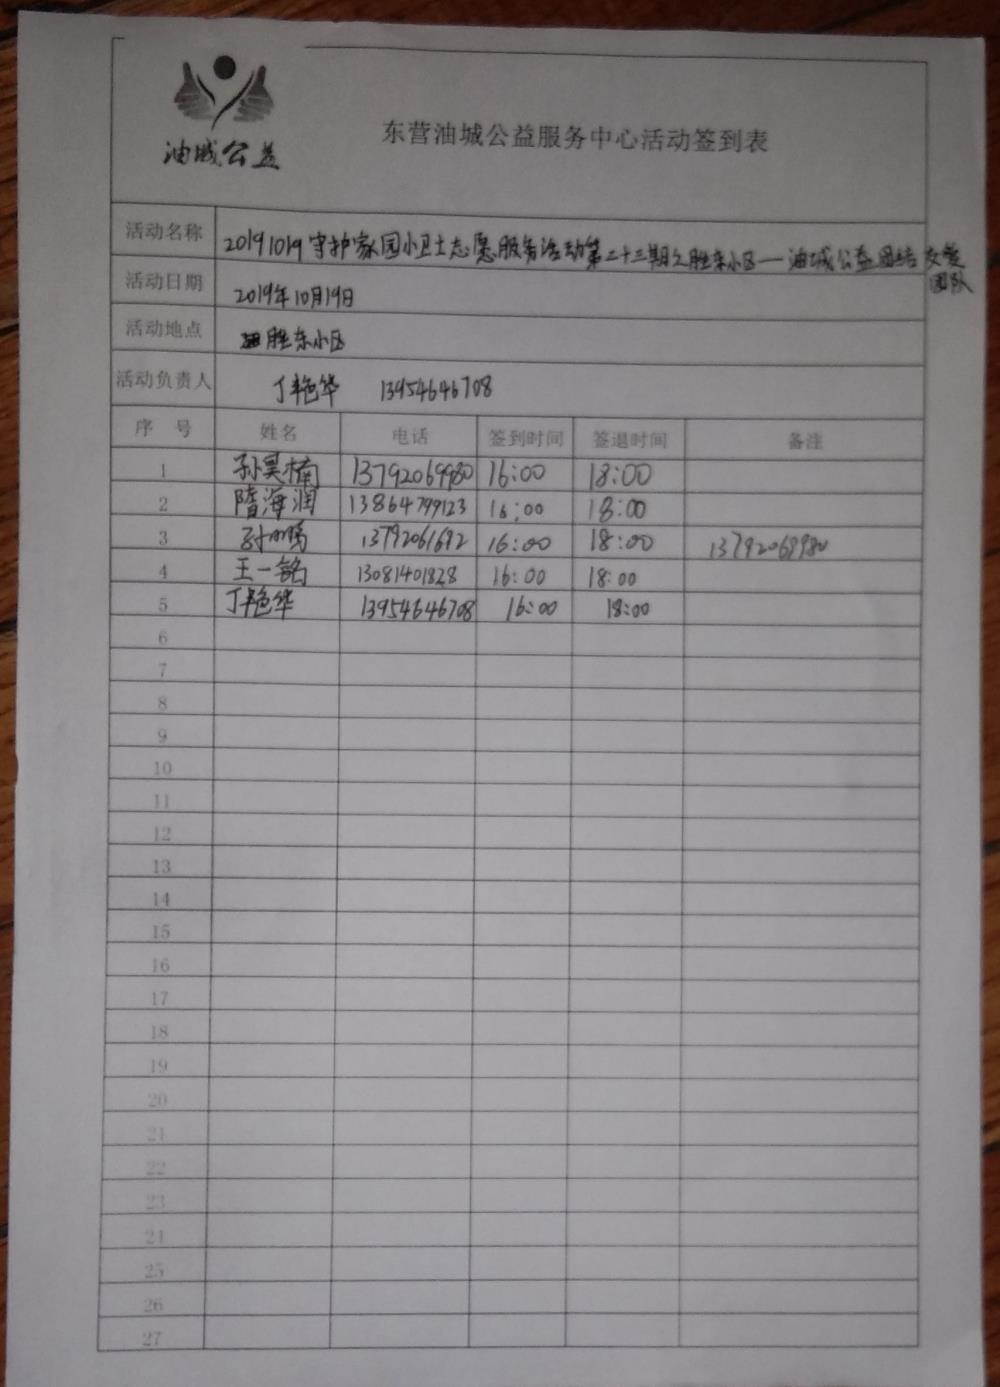 油城公益
东营油城公益服务中心活动签到表
活动名称 20191019守护家园小卫士志愿服务活动第二十三期之胜东小区—油城公益团结友爱
团队
活动日期 2019年10月19日
活动地点 胜东小区
活动负责人 丁艳华 13954646708
序 号 姓名 电话 签到时间 签退时间 备注
1 孙昊楠 13792069980 16:00 18:00
2 隋海润 13864799123 16:00 18:00
3 13792061692 16:00 18:00 13792069980
4 王一铭 13081401828 16:00 18:00
5 丁艳华 13954646708 16:00 18:00
6
7
8
9
10
11
12
13
14
15
16
17
18
19
20
21
22
23
24
25
26
27